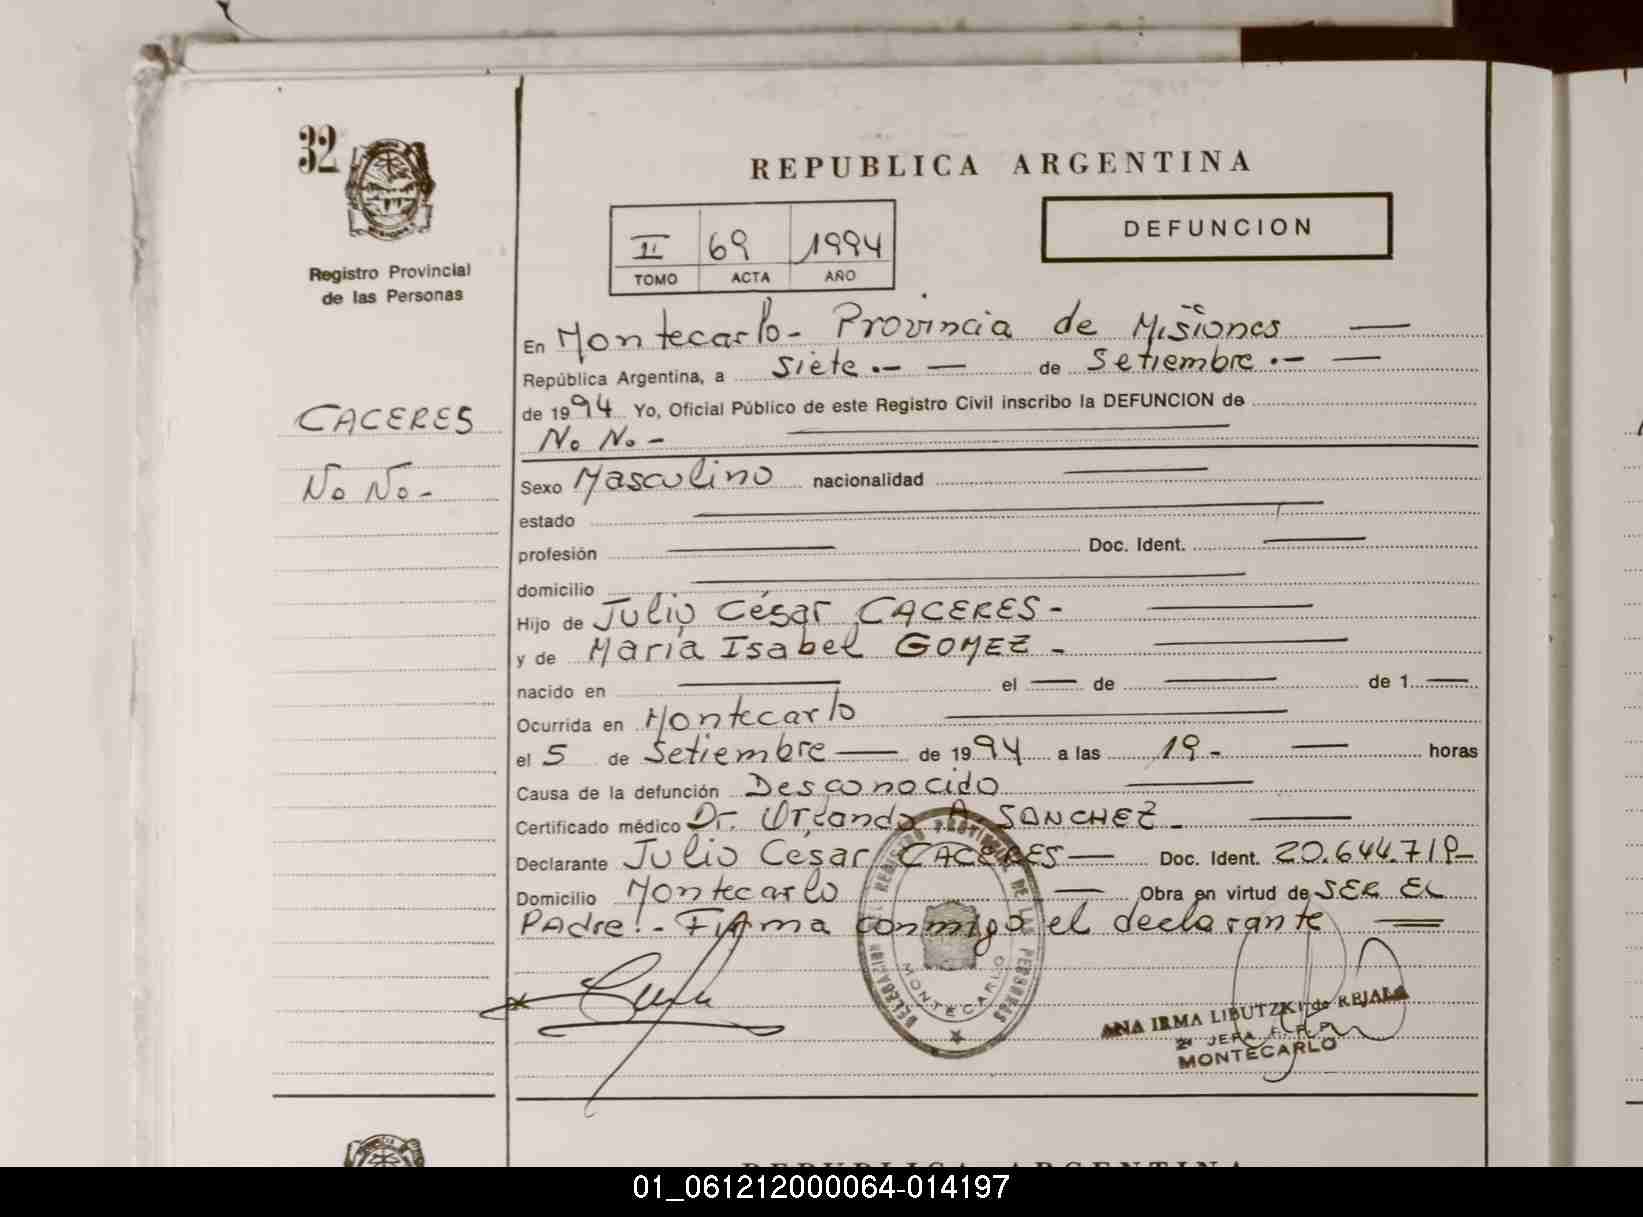 32
Registro Provincial
de las Personas
CACERES
No No-
REPUBLICA ARGENTINA
II 69 1994
TOMO ACTA AÑO
DEFUNCION
En Montecarlo- Provincia de Misiones
República Argentina, a siete.- de Setiembre.-
de 1994 Yo, Oficial Público de este Registro Civil inscribo la DEFUNCION de
No No-
Sexo Masculino nacionalidad
estado
profesión Doc. Ident.
domicilio
Hijo de Julio César CACERES-
y de María Isabel GOMEZ-
nacido en el de de 1
Ocurrida en Montecarlo
el 5 de Setiembre de 1994 a las 19- horas
Causa de la defunción Desconocido
Certificado médico Dr. Orlando A SANCHEZ-
Declarante Julio Cesar CACERES Doc. Ident. 20.644.719-
Domicilio Montecarlo Obra en virtud de SER EL
PAdre!- FIRma conmigo el declarante
DELEGACION DEL REGISTRO PROVINCIAL DE LAS PERSONAS
MONTECARLO
ANA IRMA LIBUTZKI de REJALA
2ª JEFA
MONTECARLO
REPUBLICA ARGENTINA
01_061212000064-014197